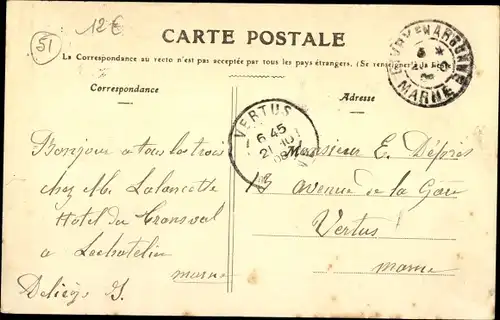 51
12€
CARTE POSTALE
La Correspondance au recto n'est pas acceptée par tous les pays étrangers. (Se renseigner
Correspondance
Adresse
MARNE
VERTUS
6 45
21
08
Bonjour a tous les trois
chez Mr Lalancette
Hotel du Transval
a Lachatelin
marne
Deliège J.
Monsieur E. Déprès
13 avenue de la Gare
Vertus
marne